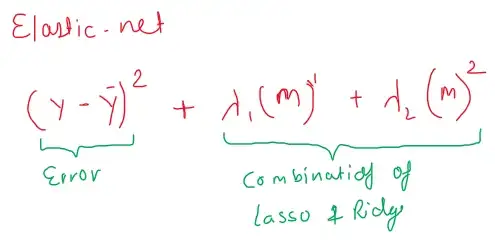 Elastic-net
(y - ȳ)² + λ₁(m)¹ + λ₂(m)²
Error
Combination of
Lasso & Ridge